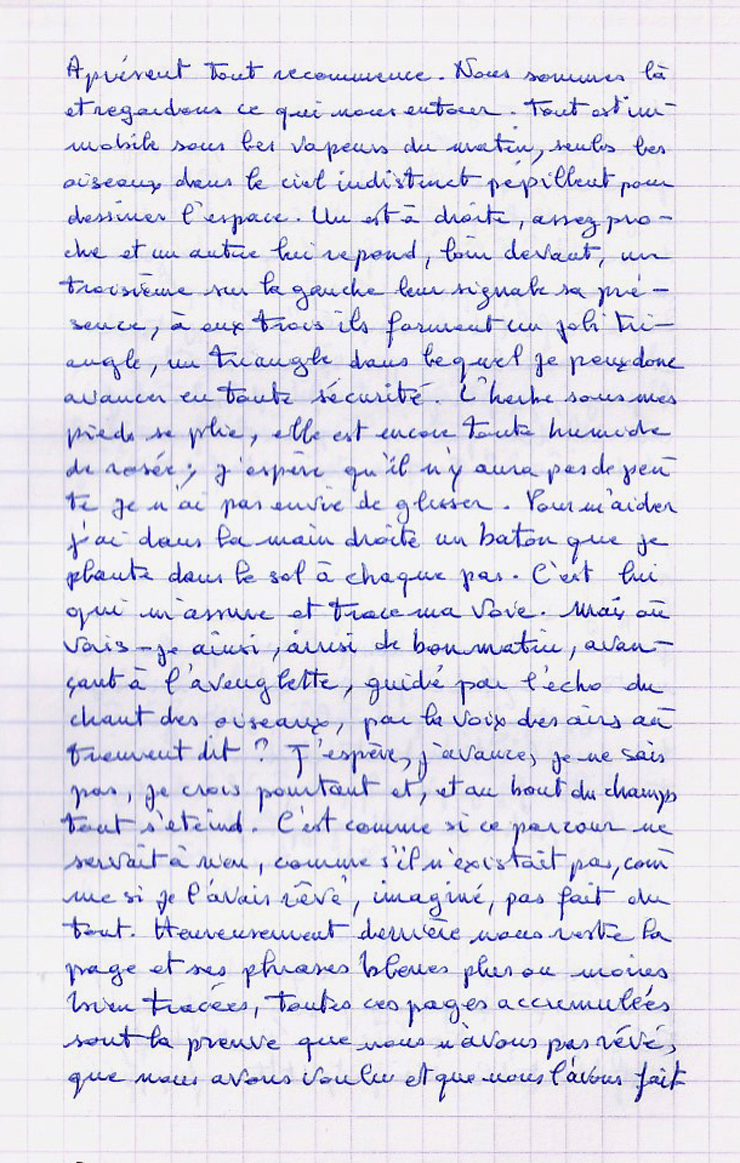 A présent tout recommence. Nous sommes là
et regardons ce qui nous entour. Tout est im-
mobile sous les vapeurs du matin, seuls les
oiseaux dans le ciel indistinct pépillent pour
dessiner l'espace. Un est à droite, assez pro-
che et un autre lui repond, loin devant, un
troisième sur la gauche leur signale sa pré-
sence, à eux trois ils forment un joli tri-
angle, un triangle dans lequel je peux donc
avancer en toute sécurité. L'herbe sous mes
pieds se plie, elle est encore toute humide
de rosée; j'espère qu'il n'y aura pas de pen-
te je n'ai pas envie de glisser. Pour m'aider
j'ai dans la main droite un baton que je
plante dans le sol à chaque pas. C'est lui
qui m'assure et trace ma voie. Mais où
vais-je ainsi, ainsi de bon matin, avan-
çant à l'aveuglette, guidé par l'écho du
chant des oiseaux, par la voix des airs au-
trement dit ? J'espère, j'avance, je ne sais
pas, je crois pourtant et, et au bout du champs
tout s'eteind. C'est comme si ce parcour ne
servait à rien, comme s'il n'existait pas, com-
me si je l'avais rêvé, imaginé, pas fait du
tout. Heureusement derrière nous reste la
page et ses phrases bleues plus ou moins
bien tracées, toutes ces pages accumulées
sont la preuve que nous n'avons pas rêvé,
que nous avons voulu et que nous l'avons fait